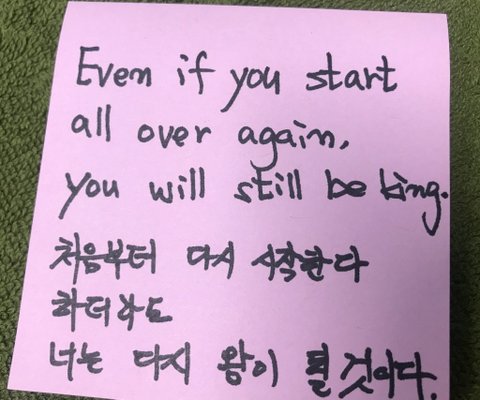 Even if you start
all over again,
you will still be king.
처음부터 다시 시작한다
하더라도
너는 다시 왕이 될 것이다.